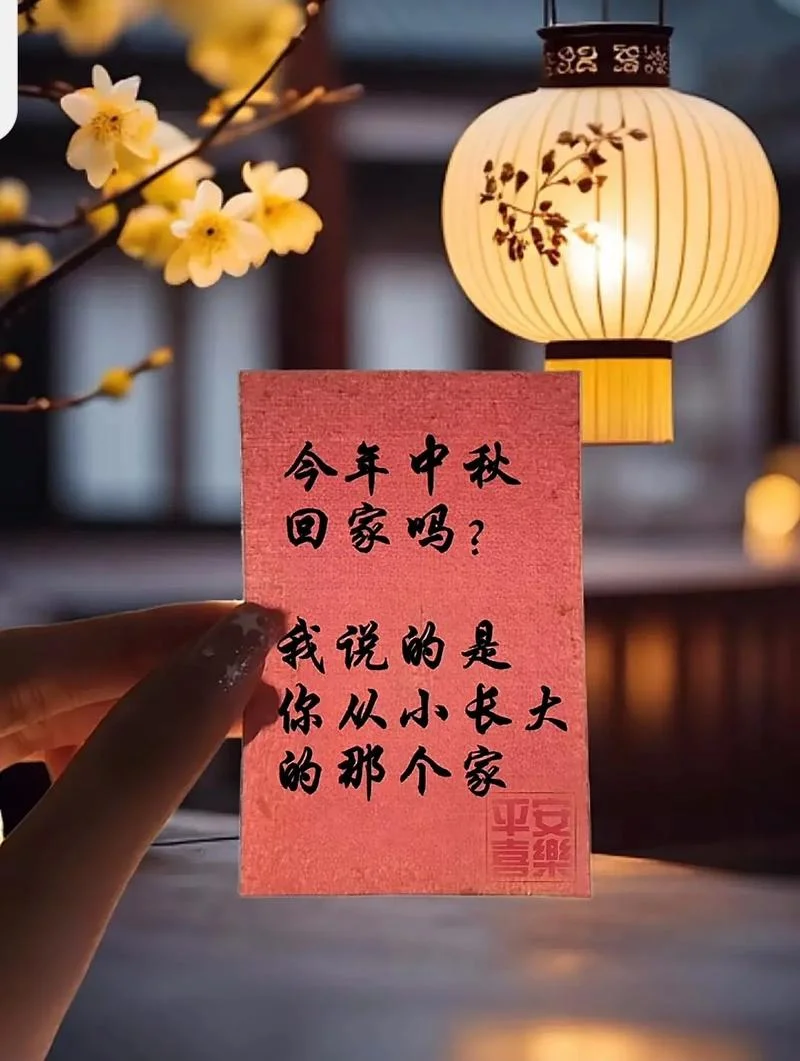 今年中秋
回家吗?
我说的是
你从小长大
的那个家
平安
喜樂